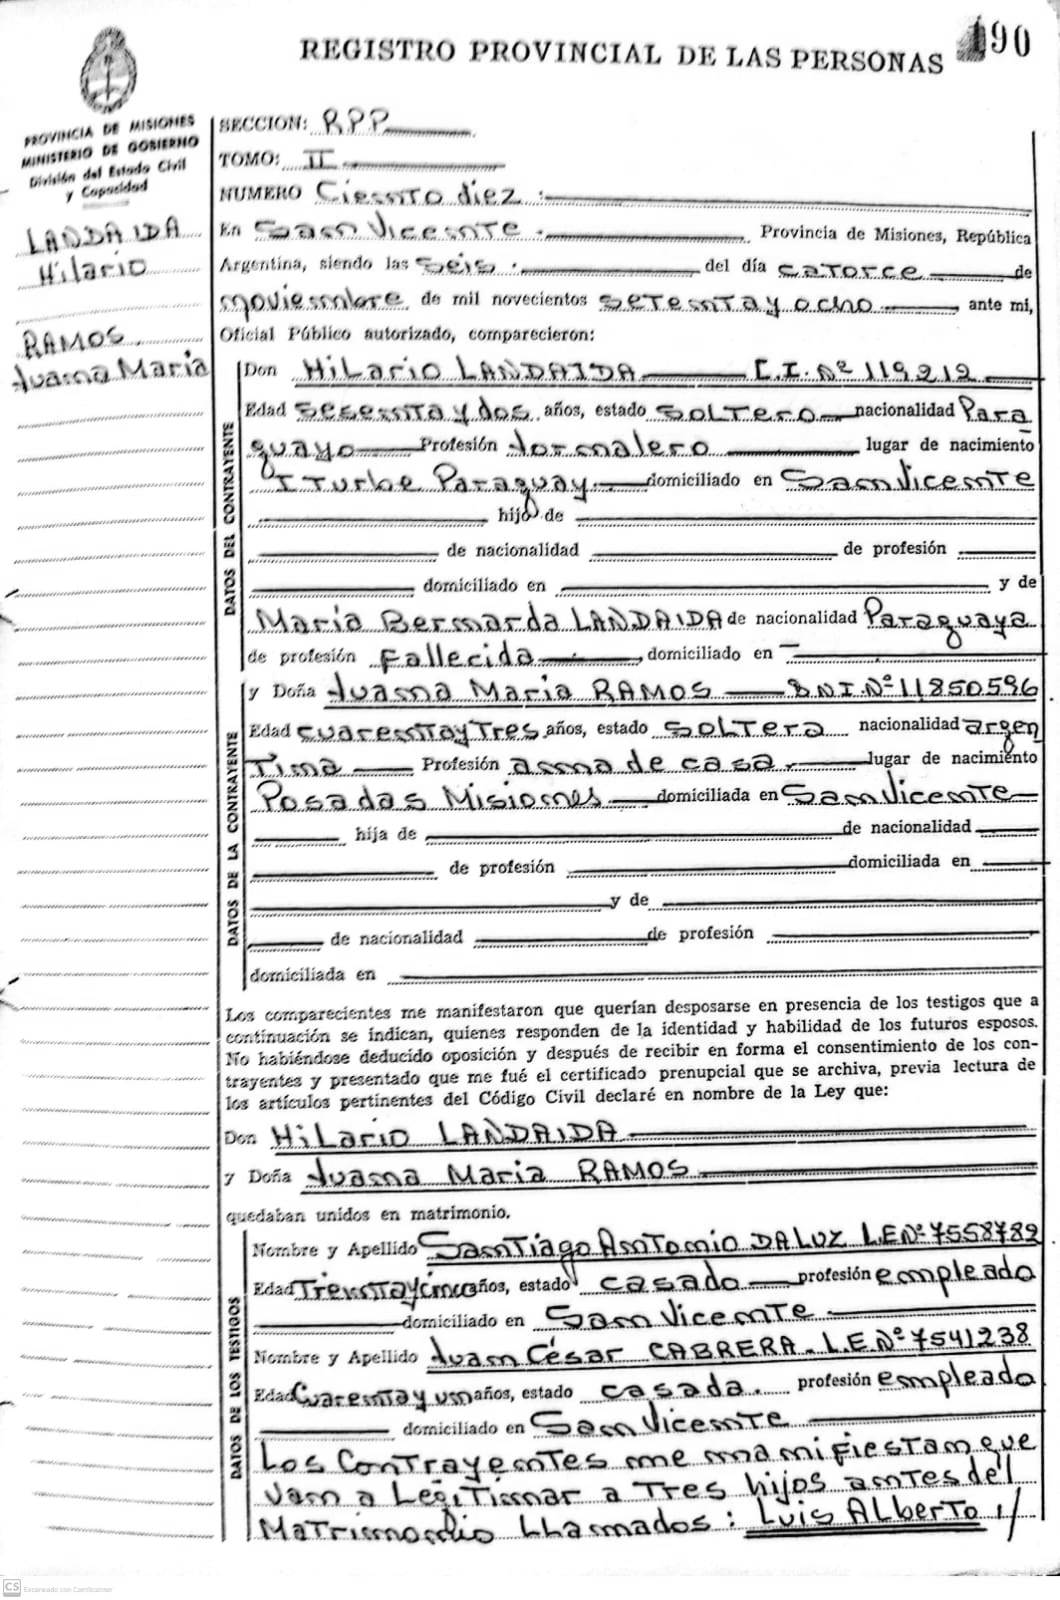 REGISTRO PROVINCIAL DE LAS PERSONAS
190
PROVINCIA DE MISIONES
MINISTERIO DE GOBIERNO
División del Estado Civil
y Capacidad
LANDAIDA
Hilario
RAMOS
Juana Maria
SECCION: RPP
TOMO: II
NUMERO Ciento diez
En San Vicente Provincia de Misiones, República
Argentina, siendo las seis del día catorce de
noviembre de mil novecientos setenta y ocho ante mi,
Oficial Público autorizado, comparecieron:
DATOS DEL CONTRAYENTE
Don Hilario LANDAIDA C.I. Nº 119212
Edad sesenta y dos años, estado soltero nacionalidad Para
guayo Profesión Jornalero lugar de nacimiento
ITurbe Paraguay domiciliado en San Vicente
hijo de
de nacionalidad de profesión
domiciliado en y de
Maria Bernarda LANDAIDA de nacionalidad Paraguaya
de profesión Fallecida, domiciliado en
DATOS DE LA CONTRAYENTE
y Doña Juana Maria RAMOS D.N.I. Nº 11850596
Edad cuarenta y Tres años, estado soltera nacionalidad argen
Tina Profesión ama de casa. lugar de nacimiento
Posadas Misiones domiciliada en San Vicente
hija de de nacionalidad
de profesión domiciliada en
y de
de nacionalidad de profesión
domiciliada en
Los comparecientes me manifestaron que querían desposarse en presencia de los testigos que a
continuación se indican, quienes responden de la identidad y habilidad de los futuros esposos.
No habiéndose deducido oposición y después de recibir en forma el consentimiento de los con-
trayentes y presentado que me fué el certificado prenupcial que se archiva, previa lectura de
los artículos pertinentes del Código Civil declaré en nombre de la Ley que:
Don Hilario LANDAIDA
y Doña Juana Maria RAMOS
quedaban unidos en matrimonio.
DATOS DE LOS TESTIGOS
Nombre y Apellido Santiago Antonio DALUZ L.E Nº 7558789
Edad Treinta y cinco años, estado casado profesión empleado
domiciliado en San Vicente
Nombre y Apellido Juan César CABRERA. L.E Nº 7541238
Edad Cuarenta y un años, estado casada. profesión empleado
domiciliado en San Vicente
Los Contrayentes me manifiestan que
van a Legitimar a Tres hijos antes del
Matrimonio LLamados: Luis ALberto //
CS Escaneado con CamScanner